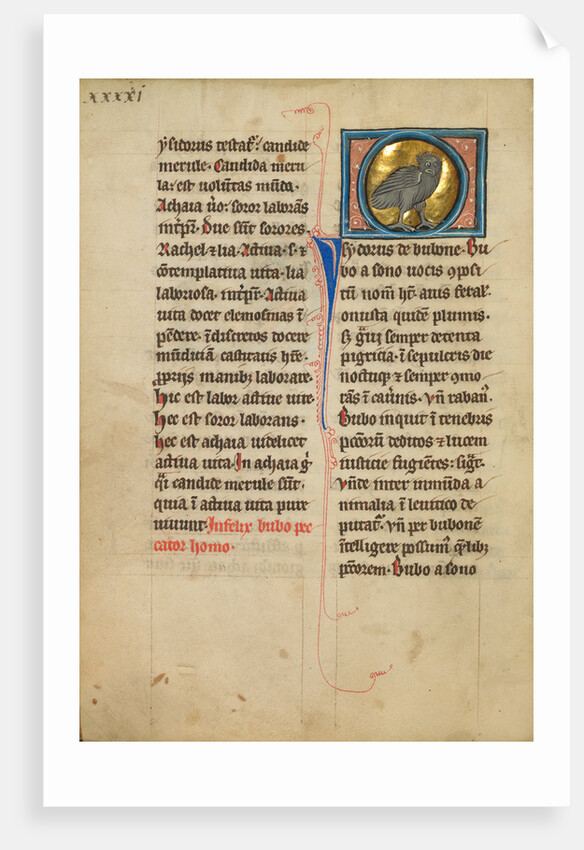 xxxxi
ysidorus testat᷑: candide
merule. Candida meru
la: est uoluntas mūda.
Achaia ū̓o: soror laborās
int̓p̄r. Due sūt sorores.
Rachel ⁊ lia. Actiua .s. ⁊
cōtemplatiua uita. lia
laboriosa. int̓p̄r. Actiua
uita docet elemosinas ī
pēdere. īdiscretos docere
mūdiciā castitatis hr̄e.
ꝓprijs manibꝫ laborare.
hic est labor actiue uite.
hec est soror laborans.
hec est achaia uidelicet
actiua uita. In achaia g̓
q̄i candide merule sūt.
quia ī actiua uita pure
uiuunt. Infelix bubo pec
cator homo.
ysidorus de bubone. Bu
bo a sono uocis ꝯposi
tū nom̄ h̄t. auis feral᷑.
onusta quidē plumis.
sꝫ g̃ui semper detenta
pigricia. ī sepulcris die
noctuqꝫ ⁊ semper ꝯmo
rās ī cau̓nis. vn̄ raban᷑.
Bubo inquit ī tenebris
pc̄cōrū deditos ⁊ lucem
iusticie fugiētes: sig᷑t.
vn̄de inter inmūda a
nimalia ī leuitico de
putat᷑. vn̄ per bubonē
ītelligere possum᷒ q̄libꝫ
pc̄corem. Bubo a sono